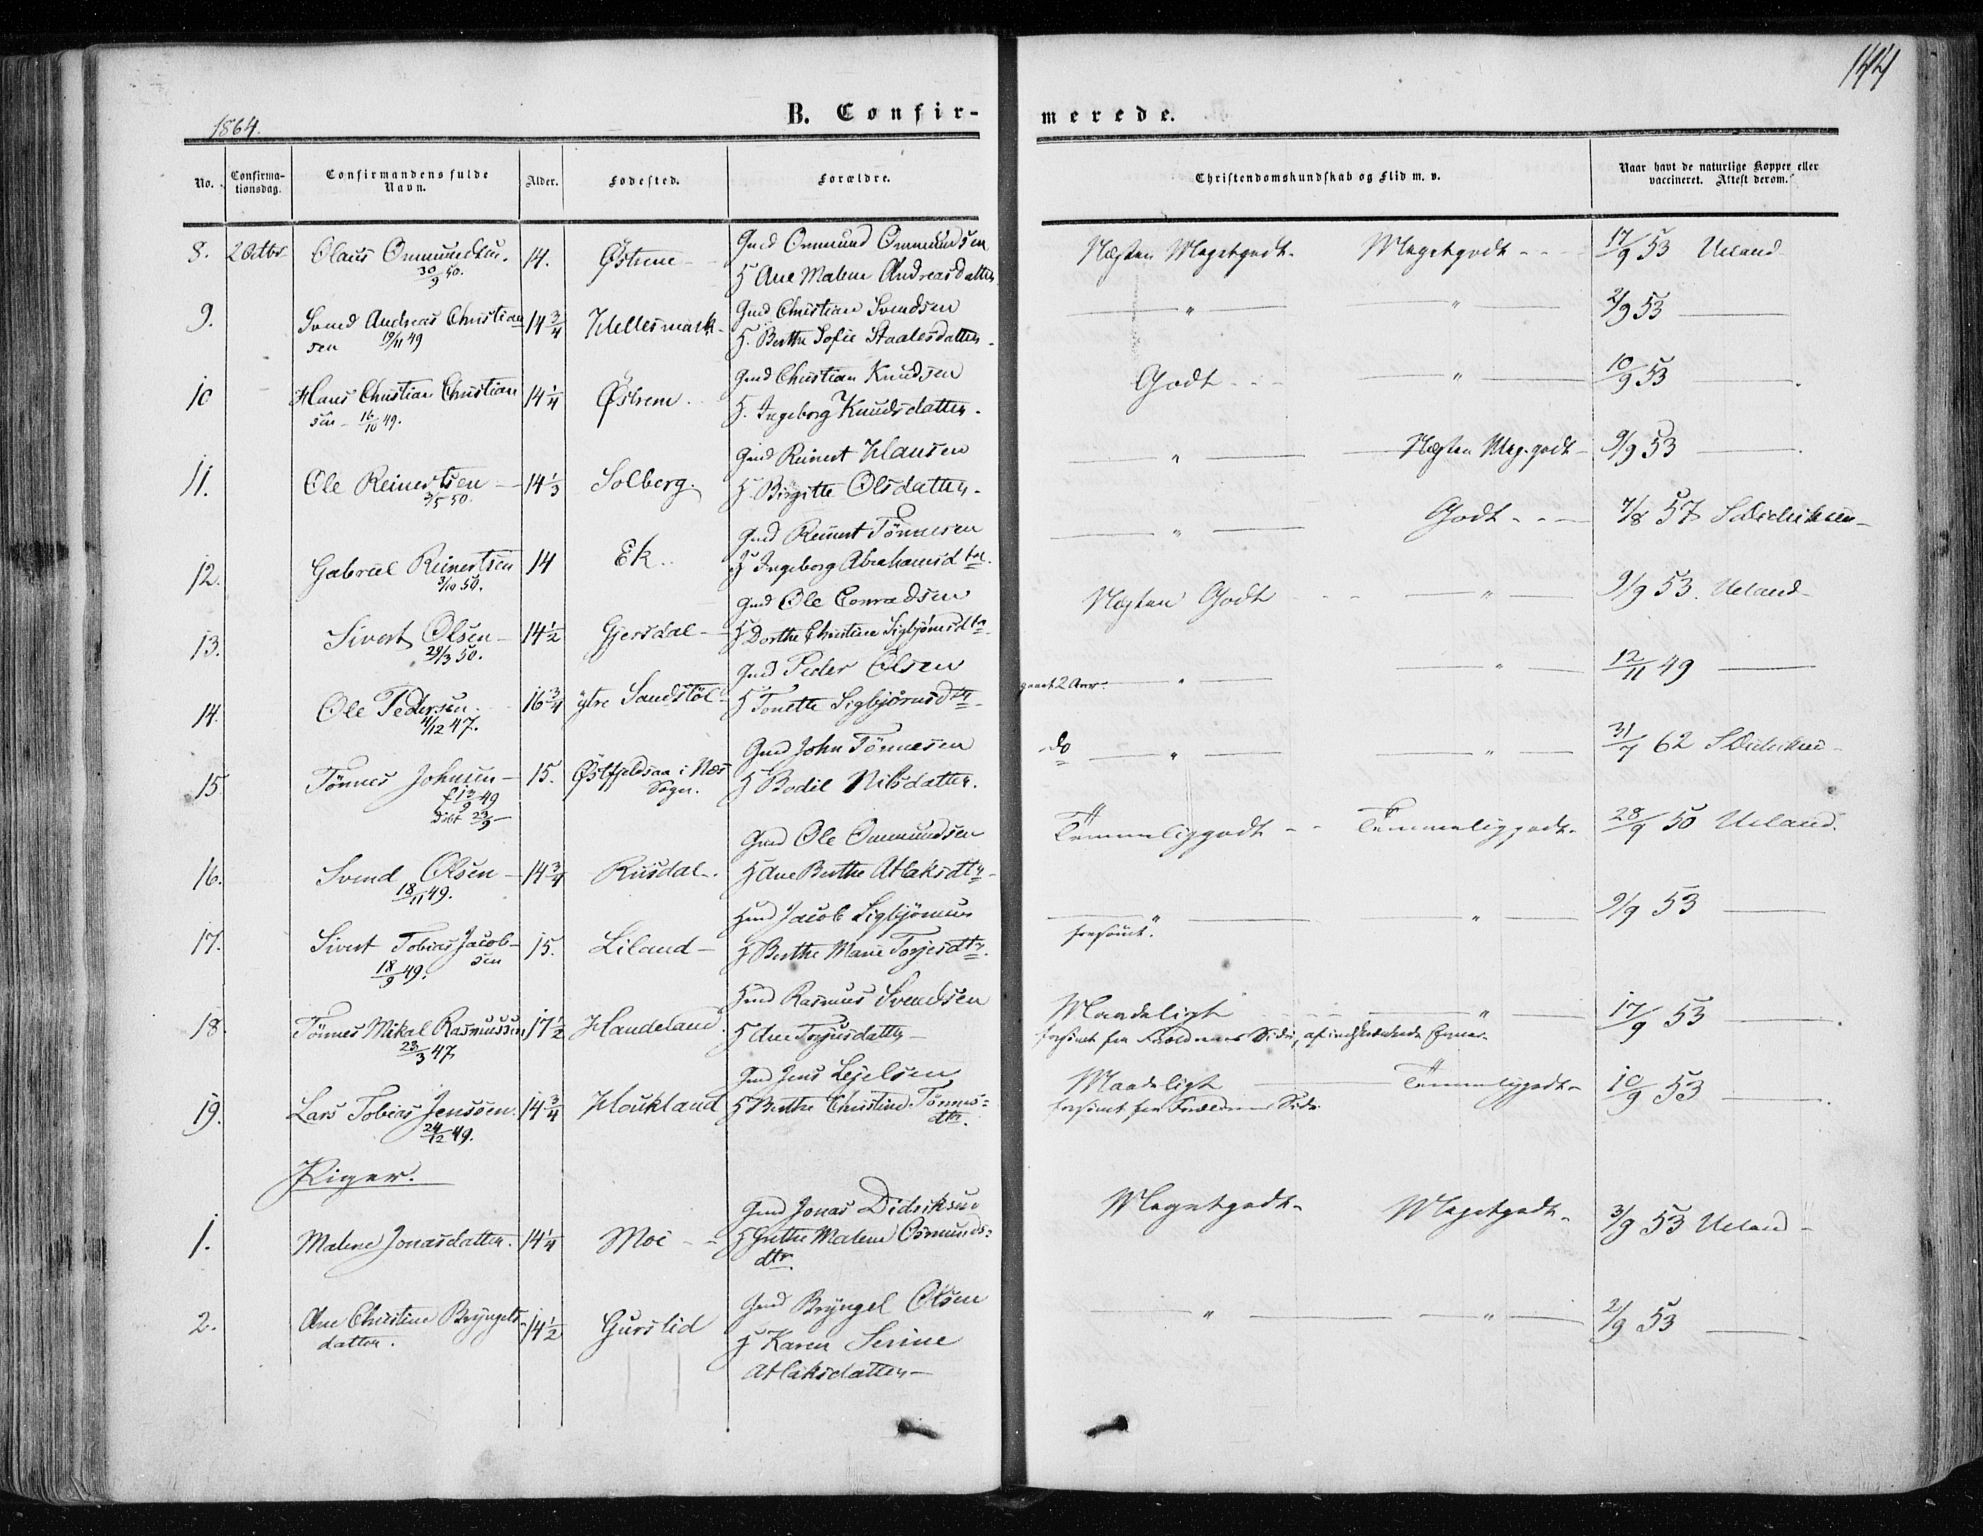 144
1864.
B. Confir-
merede.
No.
Confirma-
tionsdag.
Confirmandens fulde
Navn.
Alder.
Fødested.
Forældre.
Christendomskundskab og Flid m. v.
Naar havt de naturlige Kopper eller
vaccineret. Attest derom.
8. 2 Octbr Olaus Ommundsen. 14. Østrem Gmd Ommund Ommundsen Næsten Megetgodt. Megetgodt 17/9 53 Ueland
30/9 50. H Ane Malene Andreasdatter
9. Svend Andreas Christian 14 3/4 Hellesmark Gmd Christian Svendsen " " 2/9 53
sen 19/11 49 H. Berthe Sofie Staalesdatter
10 Hans Christian Christian 14 1/4 Østrem. Gmd Christian Knudsen Godt " 10/9 53
sen 16/10 49. H. Ingeborg Knudsdatter.
11. Ole Reinertsen 14 1/3 Solberg. Gmd Reinert Hansen " Næsten Meg. godt 9/9 53
3/5 50. H. Birgitte Olsdatter.
12. Gabriel Reinertsen 14 Ek. Gmd Reinert Tønnesen " Godt 7/8 57
3/10 50. H Ingeborg Abrahamsdtr.
13. Sivert Olsen 14 1/2 Gjersdal Gmd Ole Conradsen Næsten Godt " 9/9 53. Ueland
29/3 50. H Dorthe Christine Sigbjørnsdtr
14. Ole Pedersen. 16 3/4 ytre Sandstøl Gmd Peder Olsen 2 " " 12/11 49
4/12 47. H Tonette Sigbjørnsdtr
15 Tønnes Johnsen 15. Østfjeldsaa i Næs Gmd John Tønnesen do " " 31/7 62
f 13/9 49 Sogn. H Bodil Nilsdatter.
døbt 23/9
16. Svend Olsen 14 3/4 Rusdal. Gmd Ole Ommundsen Temmeliggodt Temmeliggodt. 28/9 50 Ueland.
18/11 49. H Ane Berthe Atlaksdtr
17. Sivert Tobias Jacob- 15. Liland Hmd Jacob Sigbjørnsen " " 9/9 53
sen H Berthe Marie Torjesdtr. forsømt.
18/9 49.
18. Tønnes Mikal Rasmussen 17 1/2 Haudeland Hmd Rasmus Svendsen Maadeligt " 17/9 53
23/3 47 H Ane Torjusdatter forsømt fra Forældrenes Side, af indskrænkede Evner.
19. Lars Tobias Jenssen. 14 3/4 Houkland Gmd Jens Lejelsen Maadeligt Temmeliggodt 10/9 53
24/12 49. H Berthe Christine Tønnes= forsømt fra Forældrenes Side.
dtr.
Piger.
1. Malene Jonasdatter. 14 1/4 Moi Gmd Jonas Didriksen Megetgodt Megetgodt 3/9 53 Ueland
H Grethe Malene Osmunds=
dtr.
2. Ane Christine Bryngels- 14 1/2 Gurslid Gmd Bryngel Olsen " " 2/9 53
datter. H Karen Serine
Atlaksdatter